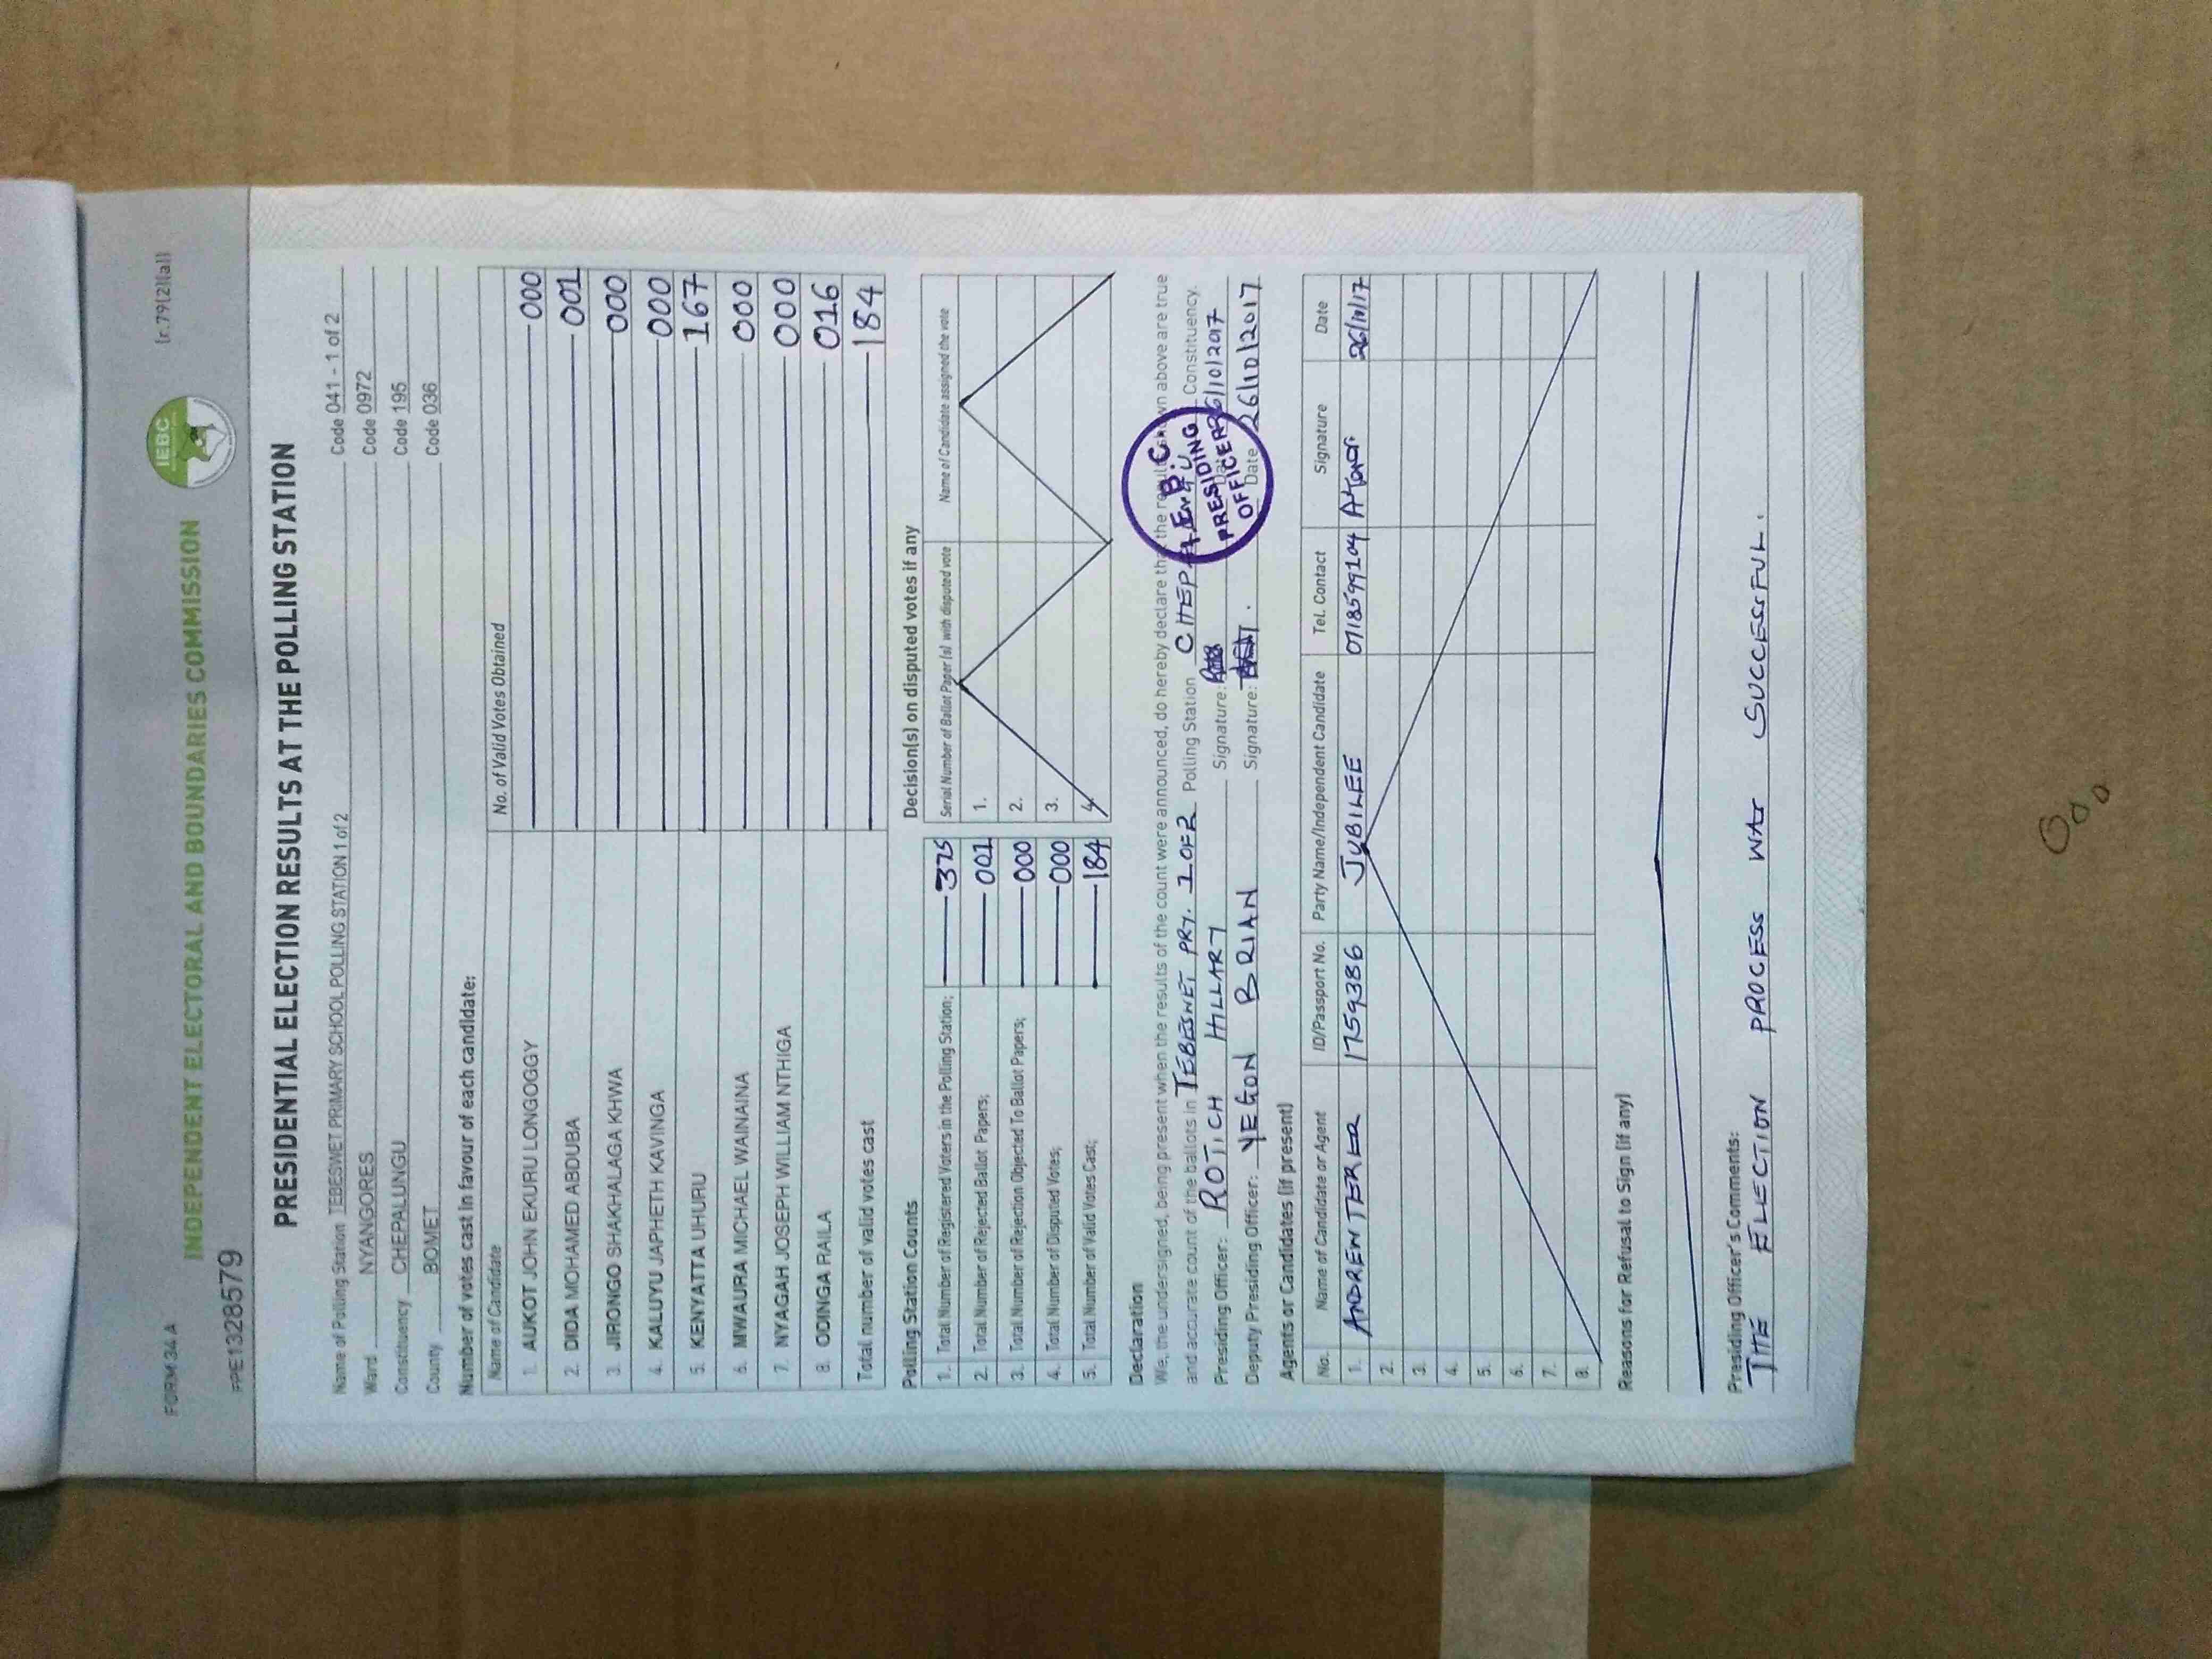 FORM 34 A
(r.79(2)(a))
IEBC
INDEPENDENT ELECTORAL AND BOUNDARIES COMMISSION
PPE1328579
PRESIDENTIAL ELECTION RESULTS AT THE POLLING STATION
Name of Polling Station TEBESWET PRIMARY SCHOOL POLLING STATION 1 of 2 Code 041 - 1 of 2
Ward NYANGORES Code 0972
Constituency CHEPALUNGU Code 195
County BOMET Code 036
Number of votes cast in favour of each candidate:
Name of Candidate No. of Valid Votes Obtained
1. AUKOT JOHN EKURU LONGOGGY 000
2. DIDA MOHAMED ABDUBA 001
3. JIRONGO SHAKHALAGA KHWA 000
4. KALUYU JAPHETH KAVINGA 000
5. KENYATTA UHURU 167
6. MWAURA MICHAEL WAINAINA 000
7. NYAGAH JOSEPH WILLIAM NTHIGA 000
8. ODINGA RAILA 016
Total number of valid votes cast 184
Polling Station Counts
1. Total Number of Registered Voters in the Polling Station; 375
2. Total Number of Rejected Ballot Papers; 001
3. Total Number of Rejection Objected To Ballot Papers; 000
4. Total Number of Disputed Votes; 000
5. Total Number of Valid Votes Cast; 184
Decision(s) on disputed votes if any
Serial Number of Ballot Paper (s) with disputed vote Name of Candidate assigned the vote
1.
2.
3.
4.
Declaration
We, the undersigned, being present when the results of the count were announced, do hereby declare that the results shown above are true
and accurate count of the ballots in TEBESWET PRY. 1 OF 2 Polling Station Constituency.
Presiding Officer: ROTICH HILLARY Signature: Date 26/10/2017
Deputy Presiding Officer: YEGON BRIAN Signature: Date 26/10/2017
I.E.B.C
PRESIDING
OFFICER
Agents or Candidates (if present)
No. Name of Candidate or Agent ID/Passport No. Party Name/Independent Candidate Tel. Contact Signature Date
1. ANDREW TERER 1759386 JUBILEE 0718599104 26/10/17
2.
3.
4.
5.
6.
7.
8.
Reasons for Refusal to Sign (if any)
Presiding Officer's Comments:
THE ELECTION PROCESS WAS SUCCESSFUL.